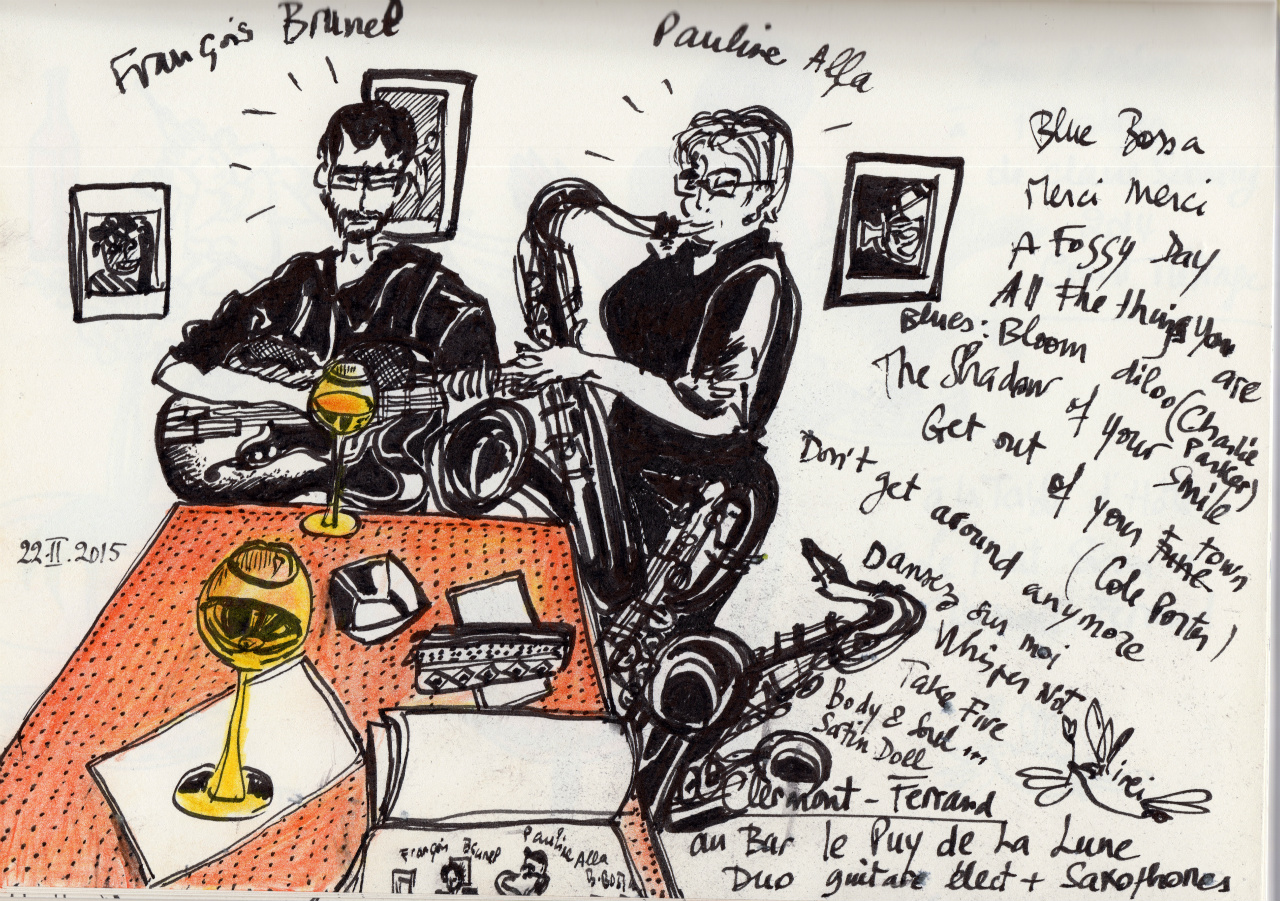 François Brunel
Pauline Alla
Blue Bossa
Merci Merci
A Foggy Day
All the things you are
Blues: Bloom dido (Charlie Parker)
The Shadow of your Smile
Get out of your town
(Cole Porter)
Don't get around anymore
Dansez sur moi
Whisper Not
Take Five
Body & Soul ...
Satin Doll
22.II.2015
Clermont-Ferrand
au Bar le Puy de La Lune
Duo guitare élect + Saxophones
François Brunel
Pauline Alla